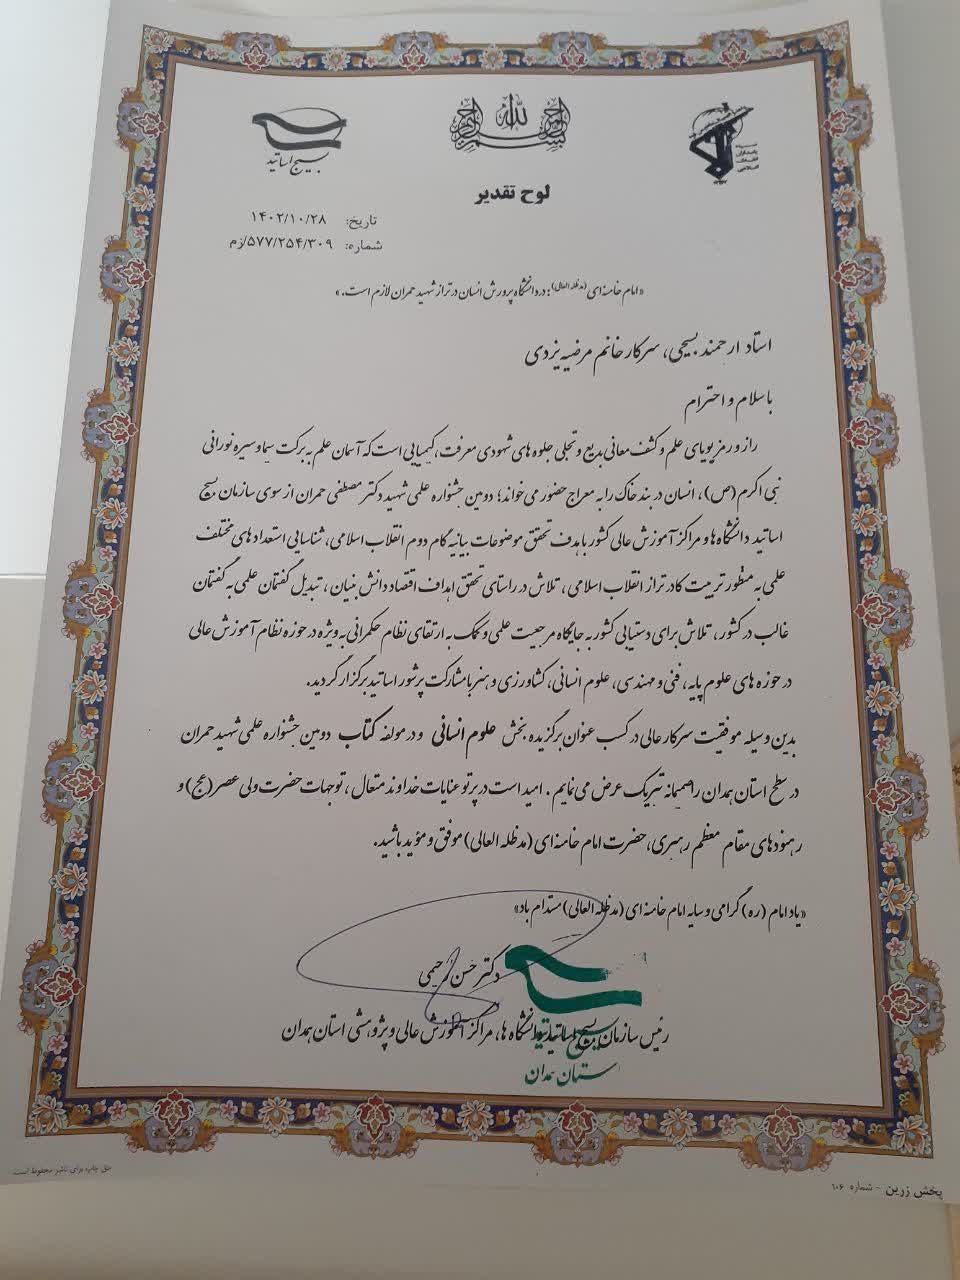 بسم الله الرحمن الرحیم
سپاه پاسداران انقلاب اسلامی
بسیج اساتید
لوح تقدیر
تاریخ: ۱۴۰۲/۱۰/۲۸
شماره: ۵۷۷/۲۵۴/۳۰۹/زم
«امام خامنه ای (مدظله العالی): در دانشگاه پرورش انسان در تراز شهید چمران لازم است.»
استاد ارجمند بسیجی، سرکار خانم مرضیه یزدی
با سلام و احترام
راز و رمز پویای علم و کشف معانی بدیع و تجلی جلوه های شهودی معرفت، کیمیایی است که آسمان علم به برکت سیما و سیره نورانی
نبی اکرم (ص)، انسان در بند خاک را به معراج حضور می خواند؛ دومین جشنواره علمی شهید دکتر مصطفی چمران از سوی سازمان بسیج
اساتید دانشگاه ها و مراکز آموزش عالی کشور با هدف تحقق موضوعات بیانیه گام دوم انقلاب اسلامی، شناسایی استعدادهای مختلف
علمی به منظور تربیت کادر تراز انقلاب اسلامی، تلاش در راستای تحقق اهداف اقتصاد دانش بنیان، تبدیل گفتمان علمی به گفتمان
غالب در کشور، تلاش برای دستیابی کشور به جایگاه مرجعیت علمی و کمک به ارتقای نظام حکمرانی به ویژه در حوزه نظام آموزش عالی
در حوزه های علوم پایه، فنی و مهندسی، علوم انسانی، کشاورزی و هنر با مشارکت پرشور اساتید برگزار گردید.
بدین وسیله موفقیت سرکار عالی در کسب عنوان برگزیده بخش علوم انسانی و در مولفه کتاب دومین جشنواره علمی شهید چمران
در سطح استان همدان را صمیمانه تبریک عرض می نمایم. امید است در پرتو عنایات خداوند متعال، توجهات حضرت ولی عصر (عج) و
رهنودهای مقام معظم رهبری، حضرت امام خامنه ای (مدظله العالی) موفق و مؤید باشید.
«یاد امام (ره) گرامی و سایه امام خامنه ای (مدظله العالی) مستدام باد»
دکتر حسن رحیمی
رئیس سازمان بسیج اساتید دانشگاه ها، مراکز آموزش عالی و پژوهشی استان همدان
استان همدان
پخش زرین - شماره ۱۰۶
حق چاپ برای ناشر محفوظ است